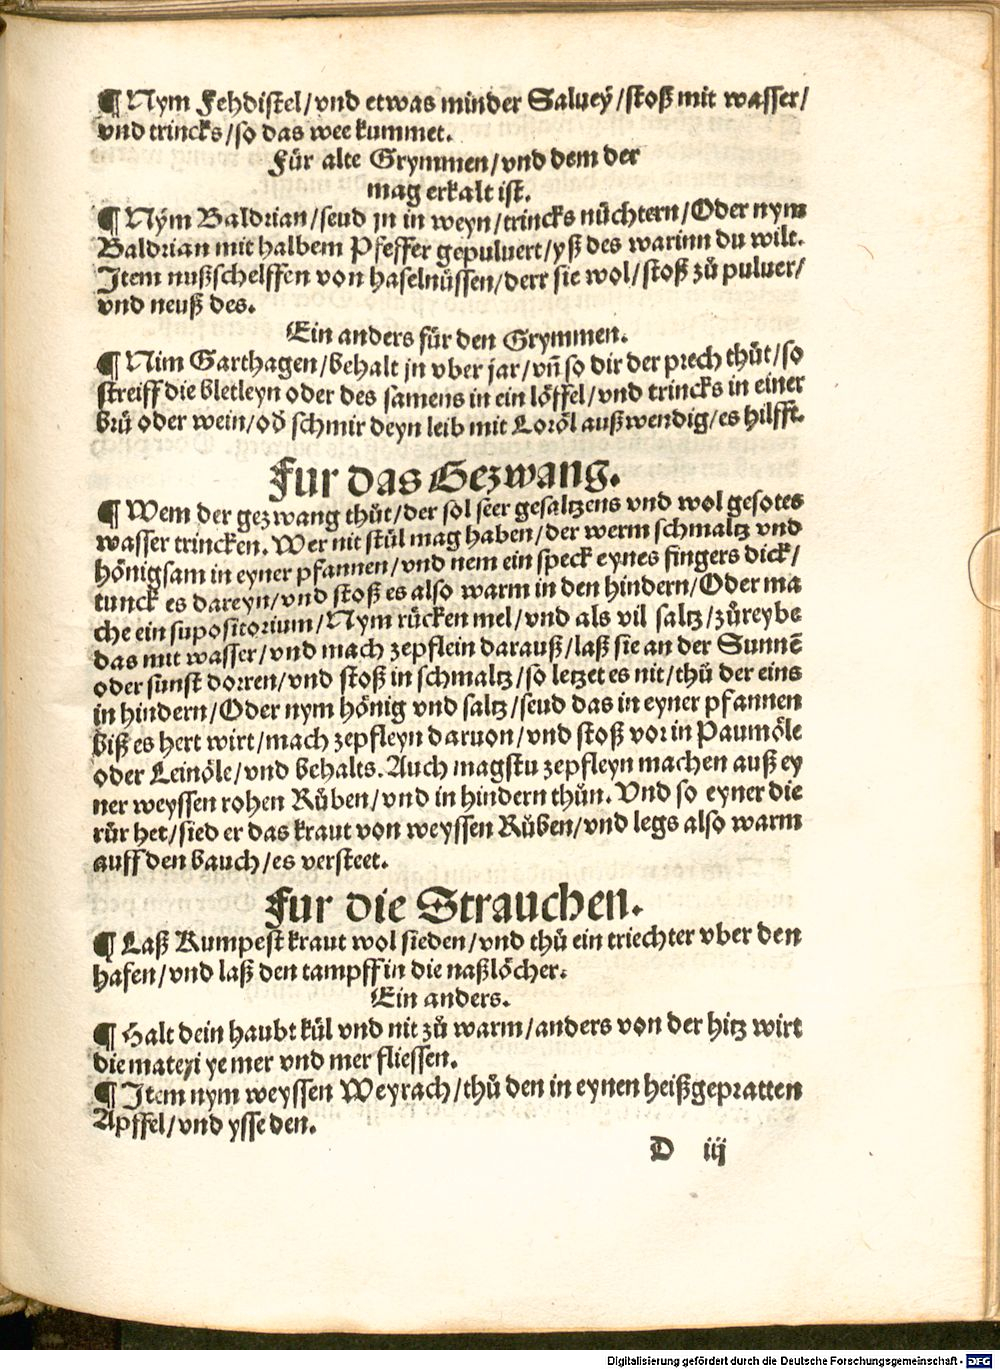 ¶ Nym Fehdistel/vnd etwas minder Saluey/stoß mit wasser/
vnd trincks/so das wee kummet.
Für alte Grymmen/vnd dem der
mag erkalt ist.
¶ Nym Baldrian/seud jn in weyn/trincks nüchtern/Oder nym
Baldrian mit halbem Pfeffer gepuluert/yß des warinn du wilt.
Item nußschelffen von haselnüssen/derr sie wol/stoß zů puluer/
vnd neuß des.
Ein anders für den Grymmen.
¶ Nim Garthagen/behalt jn vber jar/vñ so dir der prech thůt/so
streiff die bletleyn oder des samens in ein löffel/vnd trincks in einer
brü oder wein/oď schmir deyn leib mit Loröl außwendig/es hilfft.
Fur das Gezwang.
¶ Wem der gezwang thůt/der sol seer gesaltzens vnd wol gesotes
wasser trincken. Wer nit stůl mag haben/der werm schmaltz vnd
hönigsam in eyner pfannen/vnd nem ein speck eynes fingers dick/
tunck es dareyn/vnd stoß es also warm in den hindern/Oder ma
che ein supositorium/Nym rücken mel/vnd als vil saltz/zůreybe
das mit wasser/vnd mach zepflein darauß/laß sie an der Sunnē
oder sunst dorren/vnd stoß in schmaltz/so letzet es nit/thů der eins
in hindern/Oder nym hönig vnd saltz/seud das in eyner pfannen
biß es hert wirt/mach zepfleyn daruon/vnd stoß vor in Paumöle
oder Leinöle/vnd behalts. Auch magstu zepfleyn machen auß ey
ner weyssen rohen Růben/vnd in hindern thůn. Vnd so eyner die
růr het/sied er das kraut von weyssen Růben/vnd legs also warm
auff den bauch/es versteet.
Fur die Strauchen.
¶ Laß Kumpest kraut wol sieden/vnd thů ein triechter vber den
hafen/vnd laß den tampff in die naßlöcher.
Ein anders.
¶ Halt dein haubt kül vnd nit zů warm/anders von der hitz wirt
die materi ye mer vnd mer fliessen.
¶ Item nym weyssen Weyrach/thů den in eynen heißgepratten
Apffel/vnd ysse den.
D iij
Digitalisierung gefördert durch die Deutsche Forschungsgemeinschaft - DFG